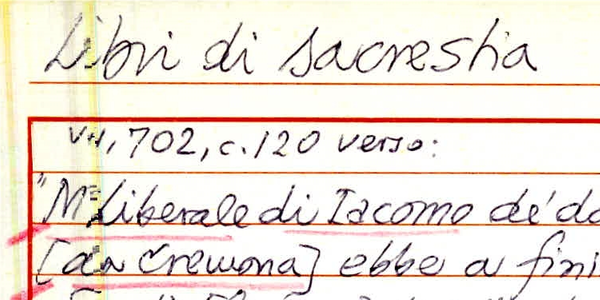 Libri di sacrestia
VII, 702, c. 120 verso:
"M° Liberale di Iacomo de' da
[da Cremona] ebbe a fini